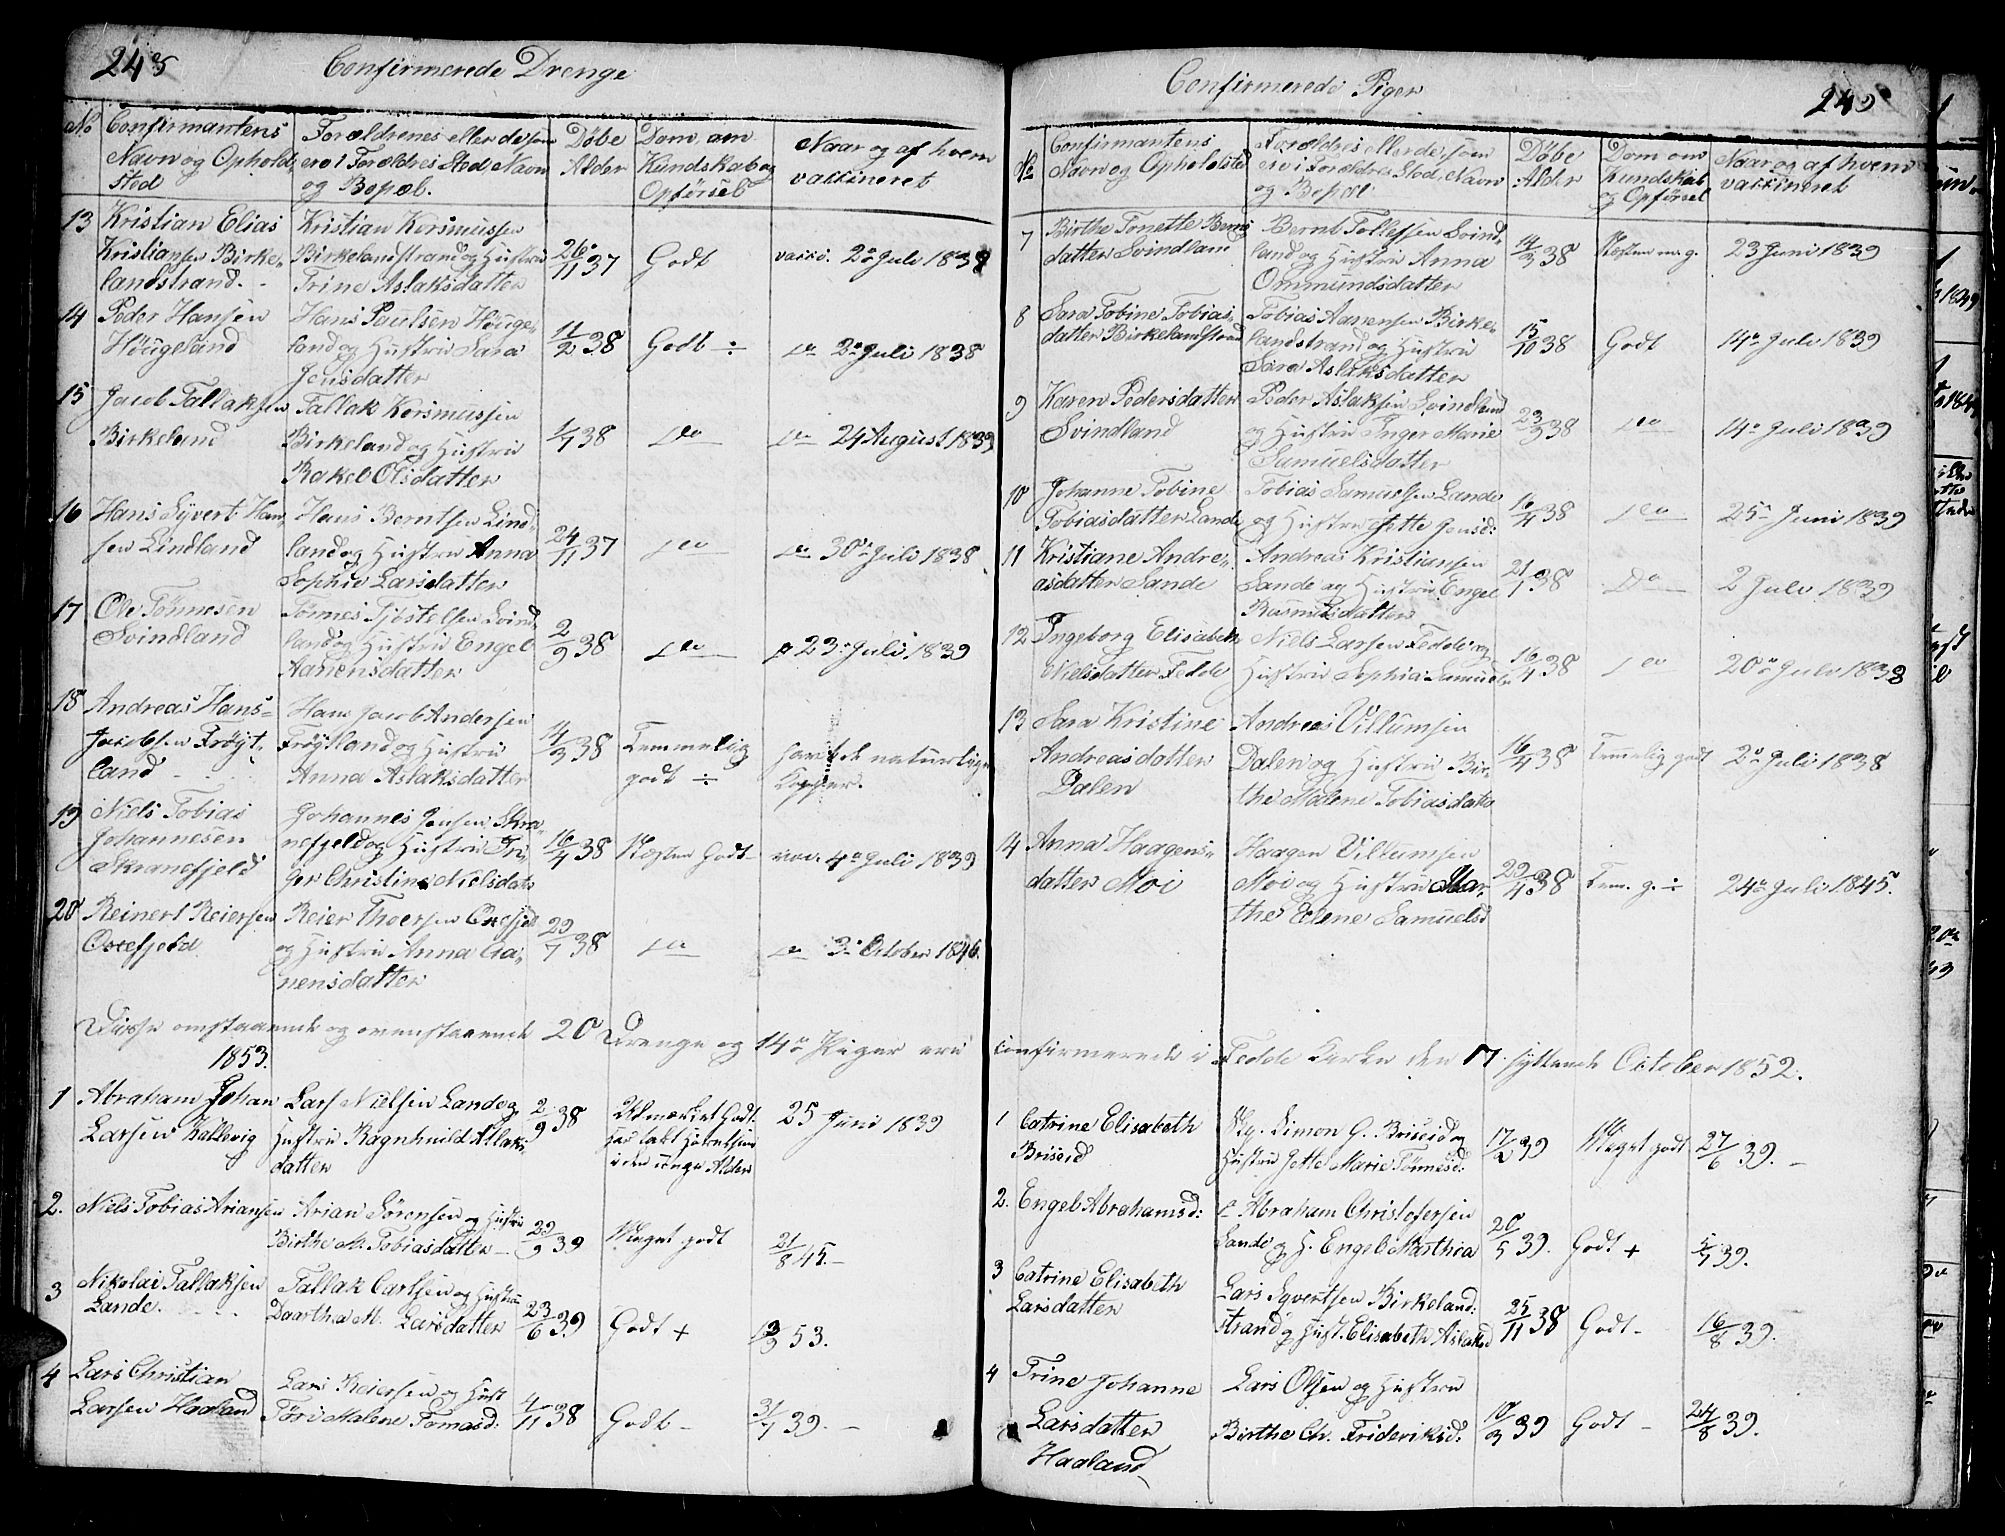 245
Confirmerede Drenge
No
Confirmantens
Navn og Ophold,,
sted
Forældrenes eller de som
ere i Forældres Sted, Navn
og Bopæl.
Døbe
Alder
Dom om
Kundskab og
Opførsel
Naar og af hvem
vakkineret
13
Kristian Elias
Kristiansen Birke,,
landstrand.
Kristian Korsmussen
Birkelandstrand og Hustru
Trine Aslaksdatter
26/11 37
Godt
vakki. 2o Juli 1838
14
Peder Hansen
Höugeland
Hans Paulsen Höuge,,
land og Hustru Sara
Jensdatter
11/2 38
Godt ÷
do 2o Juli 1838
15
Jacob Tallaksen
Birkeland
Tallak Korsmussen
Birkeland og Hustru
Rakel Olsdatter
1/7 38
do
do 24 August 1839
16
Hans Syvert Han,,
sen Lindland
Hans Berntsen Lind,,
land og Hustru Anna
Sophie Larsdatter
24/11 37
do
do 30o Juli 1838
17
Ole Tönnesen
Svindland
Tönnes Tjöstelsen Svind,,
land og Hustru Engel
Aanensdatter
2/9 38
do
do 23 Juli 1839
18
Andreas Hans=
Jacobsen Fröyt,,
land
Hans Jacob Andersen
Fröytland og Hustru
Anna Aslaksdatter
14/3 38
Temmelig
godt ÷
havt de naturlige
Kopper.
19
Niels Tobias
Johannesen
Skranefjeld
Johannes Jensen Skra,,
nefjeld og Hustru In,,
ger Christine Nielsdatr
16/4 38
Næsten Godt
vac. 4o Juli 1839
20
Reinert Reiersen
Osefjeld
Reier Thorsen Osefjeld
og Hustru Anna Aa,,
nensdatter
29/7 38
do
do 3o October 1846.
Disse omstaaende og ovenstaaende 20 Drenge og 14 Piger ere
1853.
1
Abraham Johan
Larsen Kallevig
Lars Nielsen Lande og
Hustru Ragnhuild Atlaks,,
datter
2/9 38
Udmærket Godt.
25 Juni 1839
2.
Niels Tobias Ariansen
Arian Sörensen og Hustru
Birthe M. Tobiasdatter
29/9 39
Meget godt
21/8 45.
3
Nikolai Tallaksen
Lande.
Tallak Carlsen og Hustru
Daarthea M. Larsdatter
23/6 39
Godt +
13/3 53.
4
Lars Christian
Larsen Haaland
Lars Reiersen og Hust
Töri Malene Tomasd:
4/11 38
Godt
31/7 39.
Confirmerede Piger
245
No
Confirmantens
Navn og Opholdsted
Forældres eller de, som
ere i Forældres Sted, Navn
og Bopæl
Döbe
Alder
Dom om
Kundskab
og Opførsel
Naar og af hvem
vakkineret
7
Birthe Tonette Bernts
datter Svindland
Bernt Tollefsen Svind,,
land og Hustru Anna
Ommundsdatter
14/3 38
Næsten m. g.
23 Juni 1839
8
Sara Tobine Tobias,,
datter Birkelandstrand
Tobias Aanensen Birke,,
landstrand og Hustru
Sara Aslaksdatter
15/10 38
Godt
14o Juli 1839
9
Karen Pedersdatter
Svindland
Peder Aslaksen Svindland
og Hustru Inger Marie
Samuelsdatter
23/3 38
do
14o Juli 1839
10
Johanne Tobine
Tobiasdatter Lande
Tobias Samuelsen Lande
og Hustru Jette Jensd:
16/4 38
do
25 Juni 1839
11
Kristiane Andre,,
asdatter Lande
Andreas Kristiansen
Lande og Hustru Engel
Rasmusdatter
21/1 38
Do
2 Juli 1839
12
Ingeborg Elisabeth
Nielsdatter Fedde
Niels Larsen Fedde og
Hustru Sophia Samuelsd
16/4 38
do
20o Juli 1838
13
Sara Kristine
Andreasdatter
Dalen
Andreas Villumsen
Dalen og Hustru Bir,,
the Malene Tobiasdatr
16/4 38
Temelig godt
2o Juli 1838
14
Anna Haagens=
datter Moi
Haagen Villumsen
Moi og Hustru Mar,,
the Elene Samuelsd
29/4 38
Tem. g. ÷
24o Juli 1845.
confirmerede i Fedde Kirke den 17 syttende October 1852.
1
Catrine Elisabeth
Briseid
Simon G. Briseid og
Hustru Jette Marie Tönnesd:
17/2 39
Meget godt
27/6 39.
2.
Engel Abrahamsd:
Abraham Christofersen
Lande og H. Engel Marthia
20/5 39.
Godt +
5/7 39.
3
Catrine Elisabeth
Larsdatter
Lars Syvertsen Birkeland:
strand og Hust. Elisabeth Aslaksd
25/11 38
Godt
16/8 39.
4
Trine Johanne
Larsdatter
Haaland
Lars Olsen og Hustru
Birthe Ch. Frideriksd:
10/3 39
Godt
24/8 39.